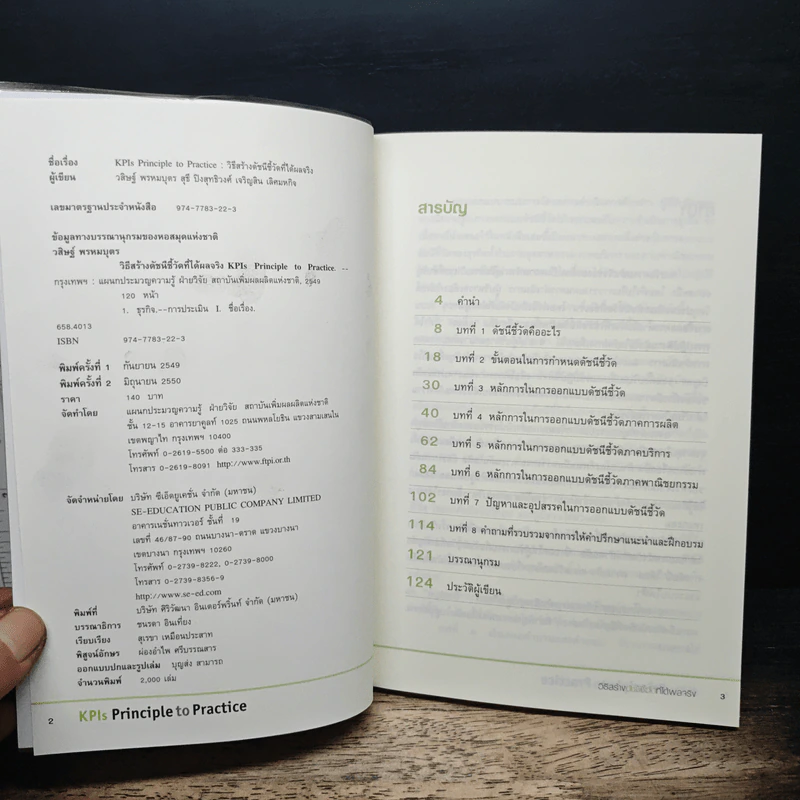 ชื่อเรื่อง KPIs Principle to Practice : วิธีสร้างดัชนีชี้วัดที่ได้ผลจริง
ผู้เขียน วสิษฐ์ พรหมบุตร สุธี ปิงสุทธิวงศ์ เจริญสิน เลิศมหกิจ
เลขมาตรฐานประจำหนังสือ 974-7783-22-3
ข้อมูลทางบรรณานุกรมของหอสมุดแห่งชาติ
วสิษฐ์ พรหมบุตร
วิธีสร้างดัชนีชี้วัดที่ได้ผลจริง KPIs Principle to Practice. --
กรุงเทพฯ : แผนกประมวญความรู้ ฝ่ายวิจัย สถาบันเพิ่มผลผลิตแห่งชาติ, 2549
120 หน้า
1. ธุรกิจ.--การประเมิน I. ชื่อเรื่อง.
658.4013
ISBN 974-7783-22-3
พิมพ์ครั้งที่ 1 กันยายน 2549
พิมพ์ครั้งที่ 2 มิถุนายน 2550
ราคา 140 บาท
จัดทำโดย แผนกประมวญความรู้ ฝ่ายวิจัย สถาบันเพิ่มผลผลิตแห่งชาติ
ชั้น 12-15 อาคารยาคูลท์ 1025 ถนนพหลโยธิน แขวงสามเสนใน
เขตพญาไท กรุงเทพฯ 10400
โทรศัพท์ 0-2619-5500 ต่อ 333-335
โทรสาร 0-2619-8091 http://www.ftpi.or.th
จัดจำหน่ายโดย บริษัท ซีเอ็ดยูเคชั่น จำกัด (มหาชน)
SE-EDUCATION PUBLIC COMPANY LIMITED
อาคารเนชั่นทาวเวอร์ ชั้นที่ 19
เลขที่ 46/87-90 ถนนบางนา-ตราด แขวงบางนา
เขตบางนา กรุงเทพฯ 10260
โทรศัพท์ 0-2739-8222, 0-2739-8000
โทรสาร 0-2739-8356-9
http://www.se-ed.com
พิมพ์ที่ บริษัท ศิริวัฒนา อินเตอร์พริ้นท์ จำกัด (มหาชน)
บรรณาธิการ ชนรดา อินเที่ยง
เรียบเรียง สุเรขา เหมือนประสาท
พิสูจน์อักษร ผ่องอำไพ ศรีบรรณสาร
ออกแบบปกและรูปเล่ม บุญส่ง สามารถ
จำนวนพิมพ์ 2,000 เล่ม
2 KPIs Principle to Practice
สารบัญ
4 คำนำ
8 บทที่ 1 ดัชนีชี้วัดคืออะไร
18 บทที่ 2 ขั้นตอนในการกำหนดดัชนีชี้วัด
30 บทที่ 3 หลักการในการออกแบบดัชนีชี้วัด
40 บทที่ 4 หลักการในการออกแบบดัชนีชี้วัดภาคการผลิต
62 บทที่ 5 หลักการในการออกแบบดัชนีชี้วัดภาคบริการ
84 บทที่ 6 หลักการในการออกแบบดัชนีชี้วัดภาคพาณิชยกรรม
102 บทที่ 7 ปัญหาและอุปสรรคในการออกแบบดัชนีชี้วัด
114 บทที่ 8 คำถามที่รวบรวมจากการให้คำปรึกษาแนะนำและฝึกอบรม
121 บรรณานุกรม
124 ประวัติผู้เขียน
วิธีสร้างดัชนีชี้วัดที่ได้ผลจริง 3